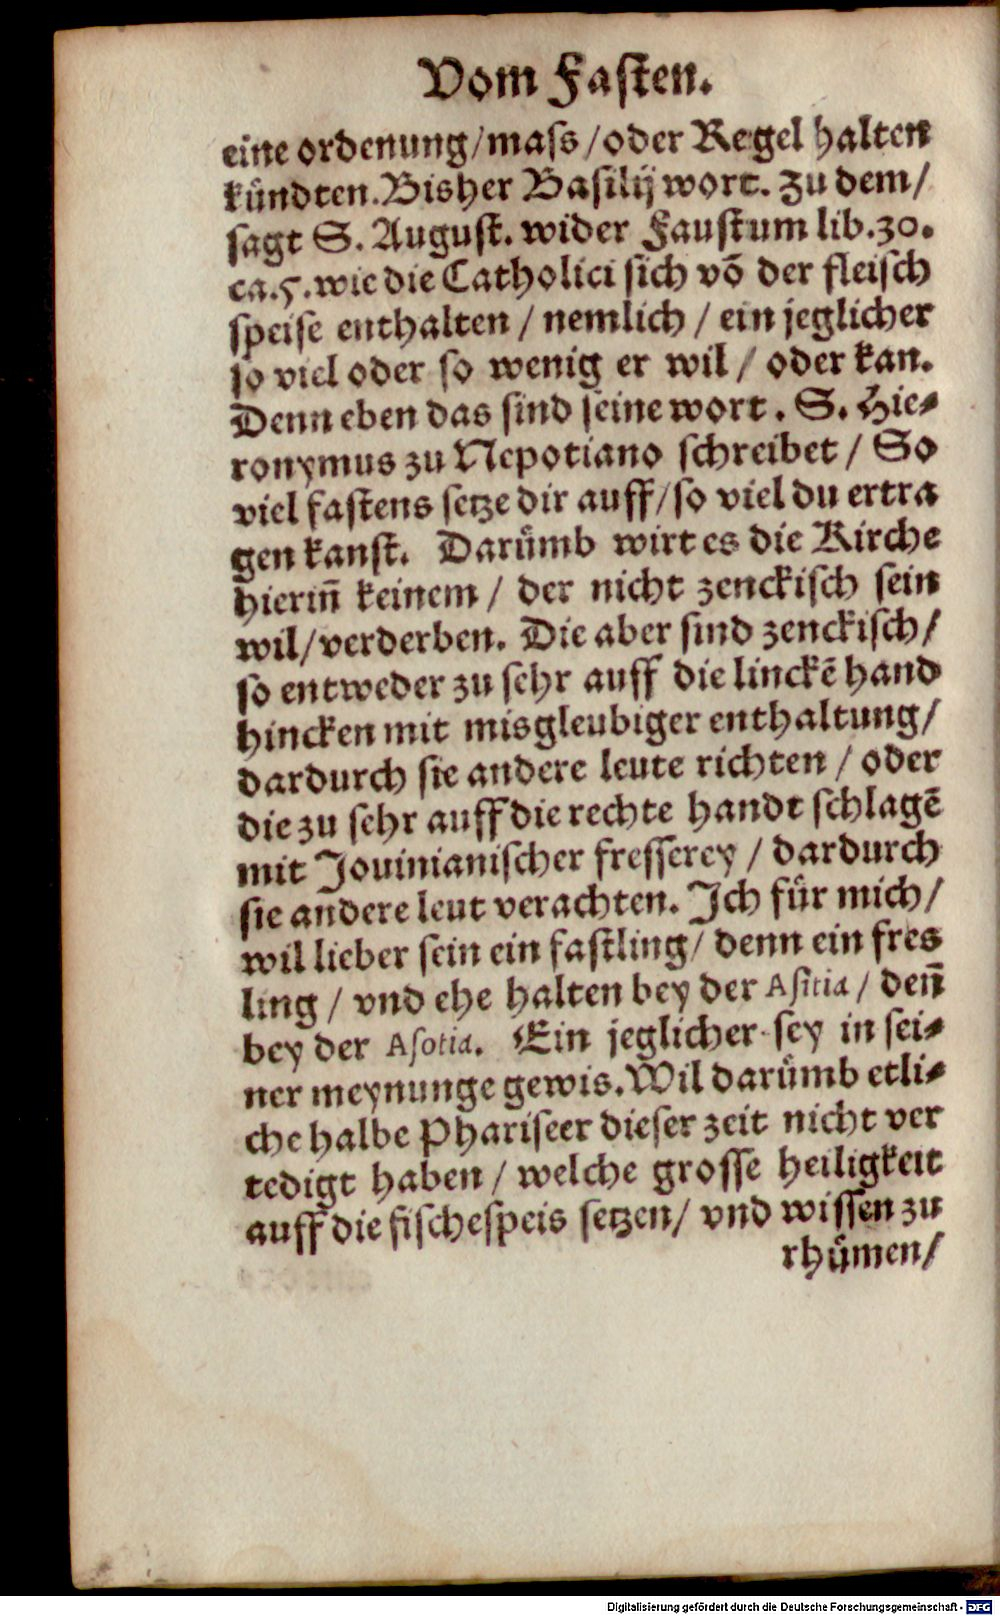 Vom Fasten.
eine ordenung/mass/oder Regel halten
kündten.Bisher Basilij wort. Zu dem/
sagt S. August. wider Faustum lib.30.
ca.5.wie die Catholici sich võ der fleisch
speise enthalten / nemlich / ein jeglicher
so viel oder so wenig er wil / oder kan.
Denn eben das sind seine wort. S. Hie-
ronymus zu Nepotiano schreibet / So
viel fastens setze dir auff/so viel du ertra
gen kanst. Darümb wirt es die Kirche
hierin̄ keinem / der nicht zenckisch sein
wil/verderben. Die aber sind zenckisch/
so entweder zu sehr auff die linckē hand
hincken mit misgleubiger enthaltung/
dardurch sie andere leute richten / oder
die zu sehr auff die rechte handt schlagē
mit Jouinianischer fresserey / dardurch
sie andere leut verachten. Ich für mich/
wil lieber sein ein fastling/ denn ein fres
ling / vnd ehe halten bey der Asitia / den̄
bey der Asotia. Ein jeglicher sey in sei-
ner meynunge gewis.Wil darümb etli-
che halbe Phariseer dieser zeit nicht ver
tedigt haben / welche grosse heiligkeit
auff die fischespeis setzen/ vnd wissen zu
rhümen/
Digitalisierung gefördert durch die Deutsche Forschungsgemeinschaft - DFG